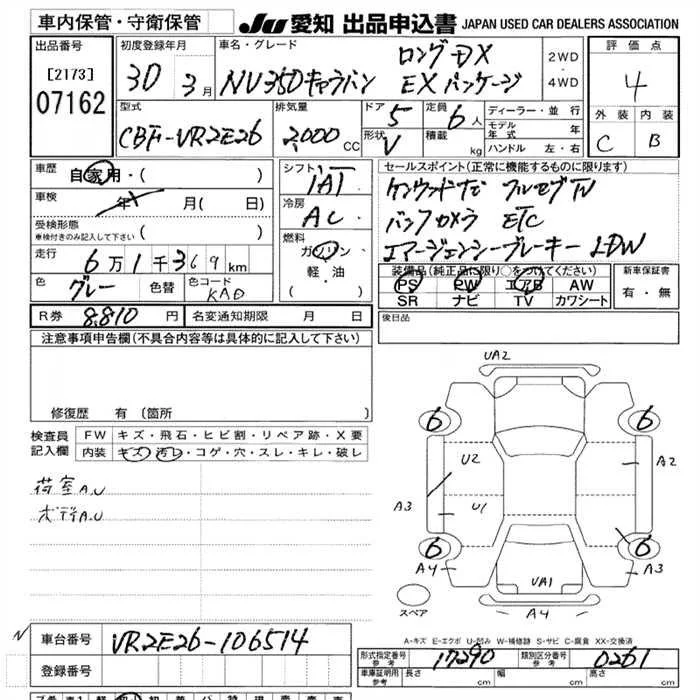 車内保管・守衛保管
JU 愛知 出品申込書 JAPAN USED CAR DEALERS ASSOCIATION
出品番号
[2173]
07162
初度登録年月
30 3月
車名・グレード
ロングDX
NV350キャラバン EXパッケージ
2WD
・
4WD
評価点
4
外装 内装
C B
型式
CBF-VR2E26
排気量
2,000 CC
ドア 5
形状 V
定員 6人
積載 kg
ディーラー・並行
モデル年式 年
ハンドル 左・右
車歴 自家用・( )
車検 年 月( 日)
受検形態
車検付きのみ記入して下さい ( )
走行 6万1千369km
色 グレー 色替 色コード KAD
R券 8,810 円 名変通知期限 月 日
シフト
IAT
冷房
AC
燃料
ガソリン
軽・油
・( )
セールスポイント(正常に機能するものに限ります)
ケンウッドナビ フルセグTV
バックカメラ ETC
エマージェンシーブレーキー LDW
装備品(純正品に限り○をつけてください)
PS PW エアB AW
SR ナビ TV カワシート
新車保証書
有・無
後日品
注意事項申告欄(不具合内容等は具体的に記入して下さい)
修復歴 有(箇所
検査員記入欄
FW キズ・飛石・ヒビ割・リペア跡・X要
内装 キズ・汚レ・コゲ・穴・スレ・キレ・破レ
荷室A.U
ボデイA.U
UA2
6 6
U2 A2
A3 U1
6 6
A4 A3
UA1
A4
スペア
A-キズ E-エクボ U-凹み W-補修跡 S-サビ C-腐食 XX-交換済
N
車台番号 VR2E26-106514
登録番号
形式指定番号 参考 17290 類別区分番号 参考 0261
車庫証明用 参考 長さ cm 幅 cm 高さ cm